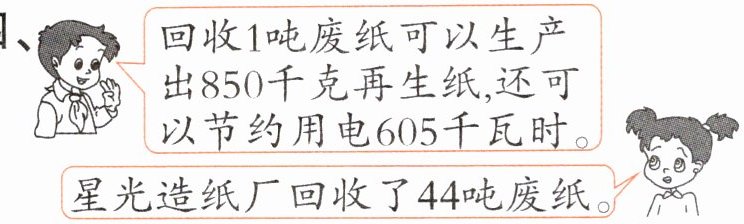 四、
回收1吨废纸可以生产
出850千克再生纸,还可
以节约用电605千瓦时。
星光造纸厂回收了44吨废纸。